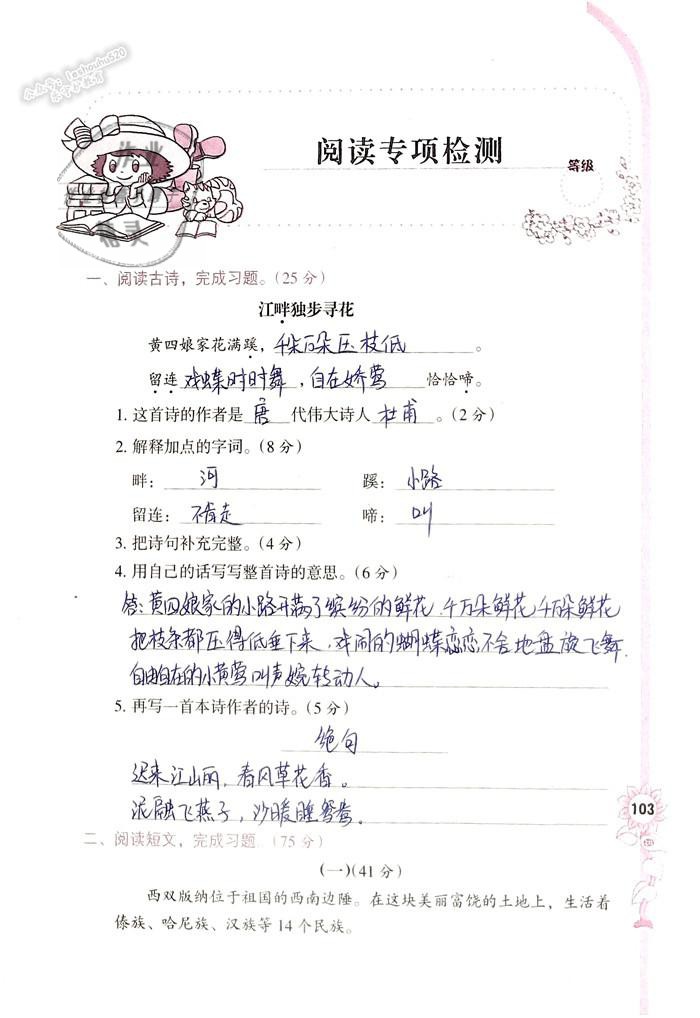 公众号：leshouhu520
乐守护教育
阅读专项检测
等级
作业
精灵
一、阅读古诗，完成习题。（25分）
江畔独步寻花
黄四娘家花满蹊，千朵万朵压枝低。
留连戏蝶时时舞，自在娇莺恰恰啼。
1. 这首诗的作者是 唐 代伟大诗人 杜甫 。（2分）
2. 解释加点的字词。（8分）
畔： 河 蹊： 小路
留连： 不肯走 啼： 叫
3. 把诗句补充完整。（4分）
4. 用自己的话写写整首诗的意思。（6分）
答：黄四娘家的小路开满了缤纷的鲜花，千万朵鲜花千朵鲜花
把枝条都压得低垂下来，戏闹的蝴蝶恋恋不舍地盘旋飞舞.
自由自在的小黄莺叫声婉转动人。
5. 再写一首本诗作者的诗。（5分）
绝句
迟来江山丽，春风草花香。
泥融飞燕子，沙暖睡鸳鸯.
103
二、阅读短文，完成习题。（75分）
（一）（41分）
西双版纳位于祖国的西南边陲。在这块美丽富饶的土地上，生活着
傣族、哈尼族、汉族等14个民族。